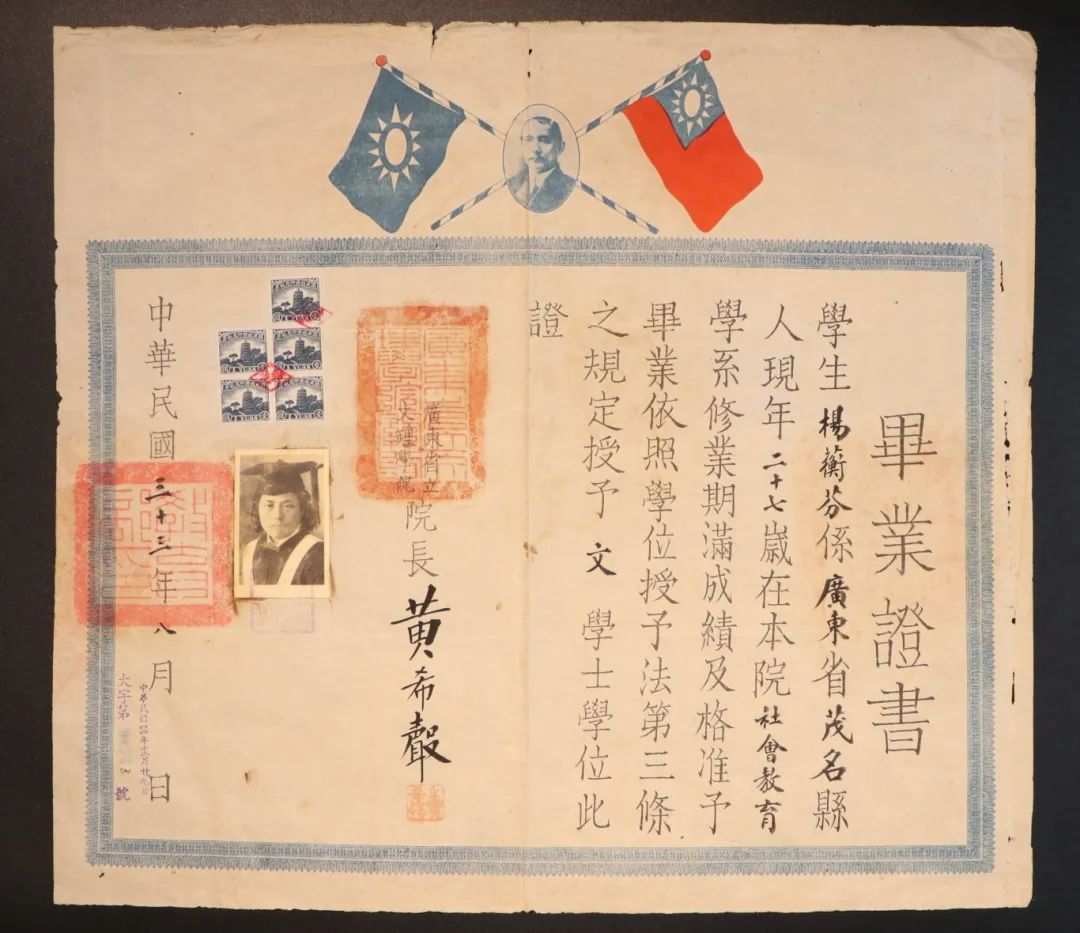 畢業證書
學生楊蘅芬係廣東省茂名縣
人現年二十七歲在本院社會教育
學系修業期滿成績及格准予
畢業依照學位授予法第三條
之規定授予文學士學位此
證
廣東省立
文理學院
院長黃希聲
1 YUAN
1 YUAN
1 YUAN
1 YUAN
1 YUAN
中華民國三十三年八月日
大字第
號